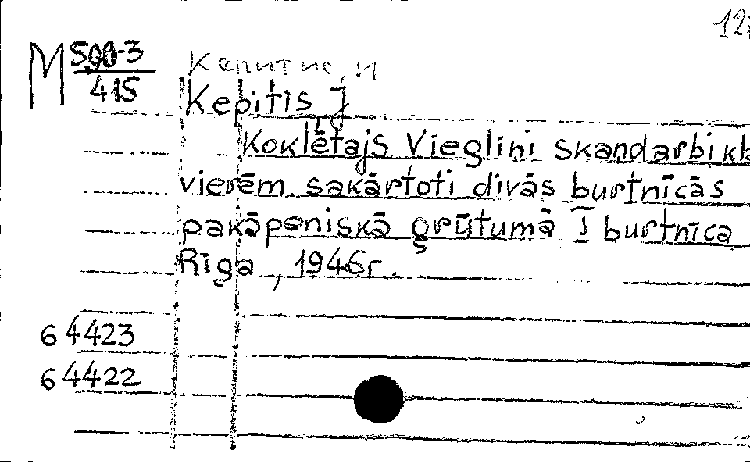 12
M 500-3
415
Кепитис, И
Kepitis J
Koklētajs Viegliņi skandarbi kb
vienēm sakārtoti divās burtnīcās
pakāpeniskā grūtumā I burtnīca
Rīga, 1946г.
64423
64422